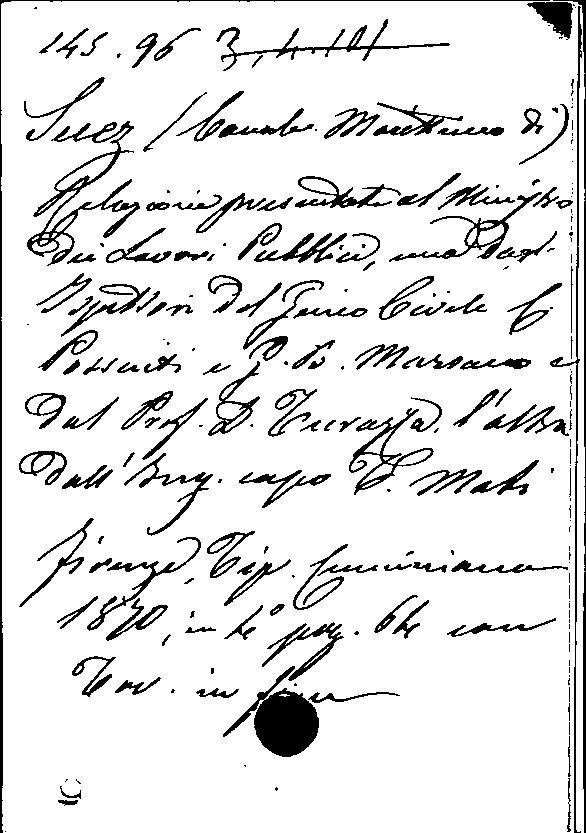 145.96 3,4.101
Suez (Canale Marittimo di)
Relazione presentata al Ministro
dei Lavori Pubblici, una dagl'
Ispettori del Genio Civile C.
Possenti e G. B. Marsano e
dal Prof. D. Turazza, l'altra
dall'Ing. capo T. Mati
Firenze, Tip. Cenniniana
1870, in 4° pag. 64 con
Tav. in fine